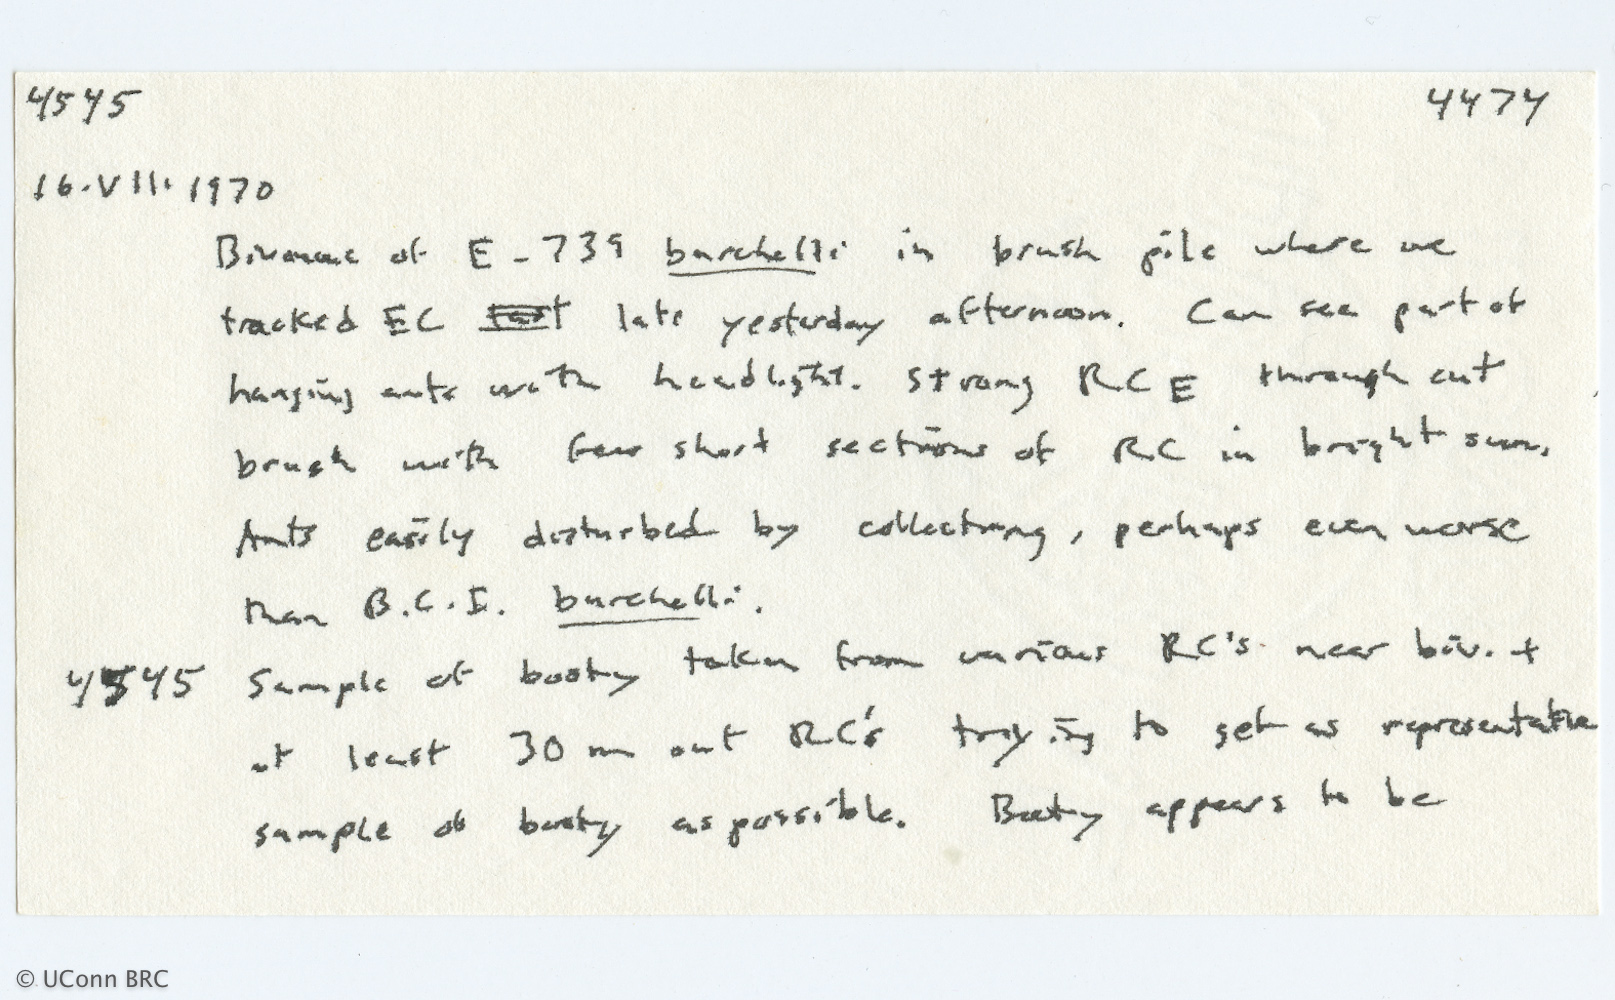 4545 4474
16.VIII.1970
Bivouac of E-739 burchelli in brush pile where we
tracked EC late yesterday afternoon. Can see part of
hanging ants with headlight. Strong RC E through cut
brush with few short sections of RC in bright sun.
Ants easily disturbed by collecting, perhaps even worse
than B.C.I. burchelli.
4545 Sample of booty taken from various RC's near biv. +
at least 30 m out RC's trying to get as representative
sample of booty as possible. Booty appears to be
© UConn BRC